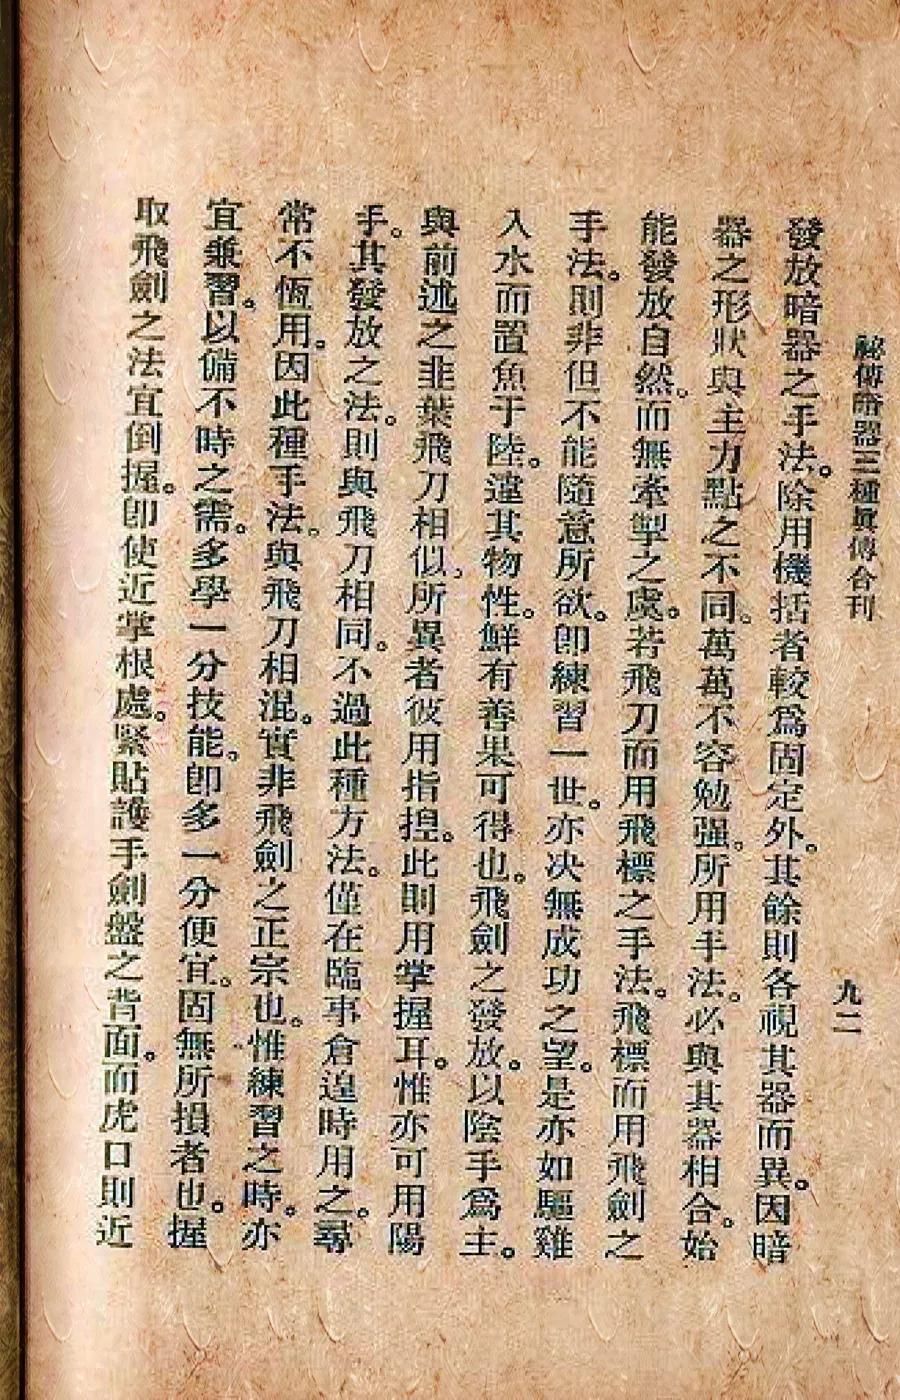 祕傳暗器三種眞傳合刊
九二
發放暗器之手法。除用機括者較爲固定外。其餘則各視其器而異。因暗
器之形狀與主力點之不同。萬萬不容勉强。所用手法。必與其器相合。始
能發放自然。而無牽掣之虞。若飛刀而用飛標之手法。飛標而用飛劍之
手法。則非但不能隨意所欲。卽練習一世。亦决無成功之望。是亦如驅雞
入水而置魚于陸。違其物性。鮮有善果可得也。飛劍之發放。以陰手爲主。
與前述之韭葉飛刀相似。所異者彼用指揑。此則用掌握耳。惟亦可用陽
手。其發放之法。則與飛刀相同。不過此種方法。僅在臨事倉遑時用之。尋
常不恆用。因此種手法。與飛刀相混。實非飛劍之正宗也。惟練習之時。亦
宜兼習。以備不時之需。多學一分技能。卽多一分便宜。固無所損者也。握
取飛劍之法宜倒握。卽使近掌根處。緊貼護手劍盤之背面。而虎口則近